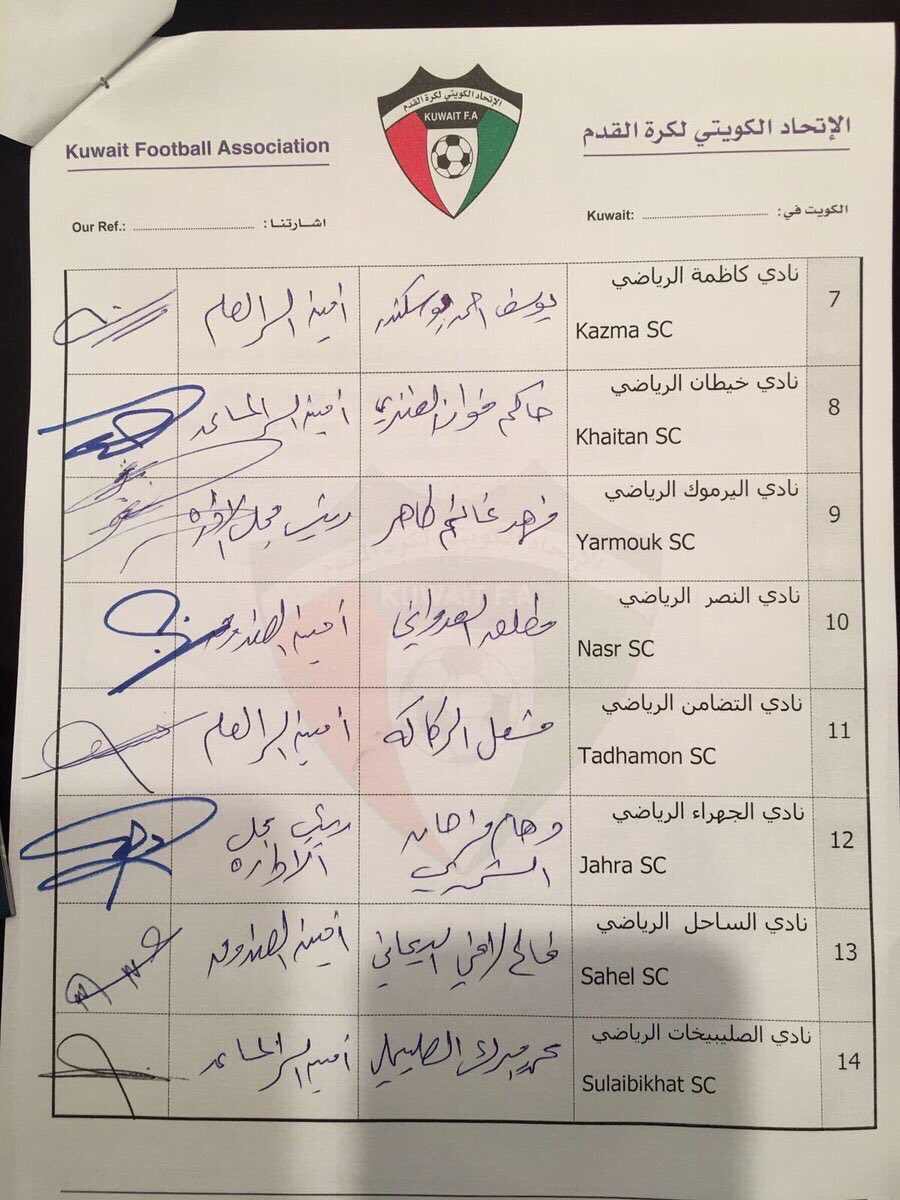 الإتحاد الكويتي لكرة القدم
KUWAIT F.A
Kuwait Football Association
الإتحاد الكويتي لكرة القدم
Our Ref.: اشارتنا:
Kuwait: الكويت في:
7 نادي كاظمة الرياضي
Kazma SC
يوسف احمد بوسكندر
أمين السر العام
8 نادي خيطان الرياضي
Khaitan SC
حاكم فواز
أمين السر المساعد
9 نادي اليرموك الرياضي
Yarmouk SC
فهد غانم طاهر
رئيس مجلس الادارة
10 نادي النصر الرياضي
Nasr SC
مطلق العدواني
أمين الصندوق
11 نادي التضامن الرياضي
Tadhamon SC
مشعل الركاكه
أمين السر العام
12 نادي الجهراء الرياضي
Jahra SC
الشمري
رئيس مجلس
الادارة
13 نادي الساحل الرياضي
Sahel SC
أمين الصندوق
14 نادي الصليبيخات الرياضي
Sulaibikhat SC
محمد مبرك
أمين السر المساعد